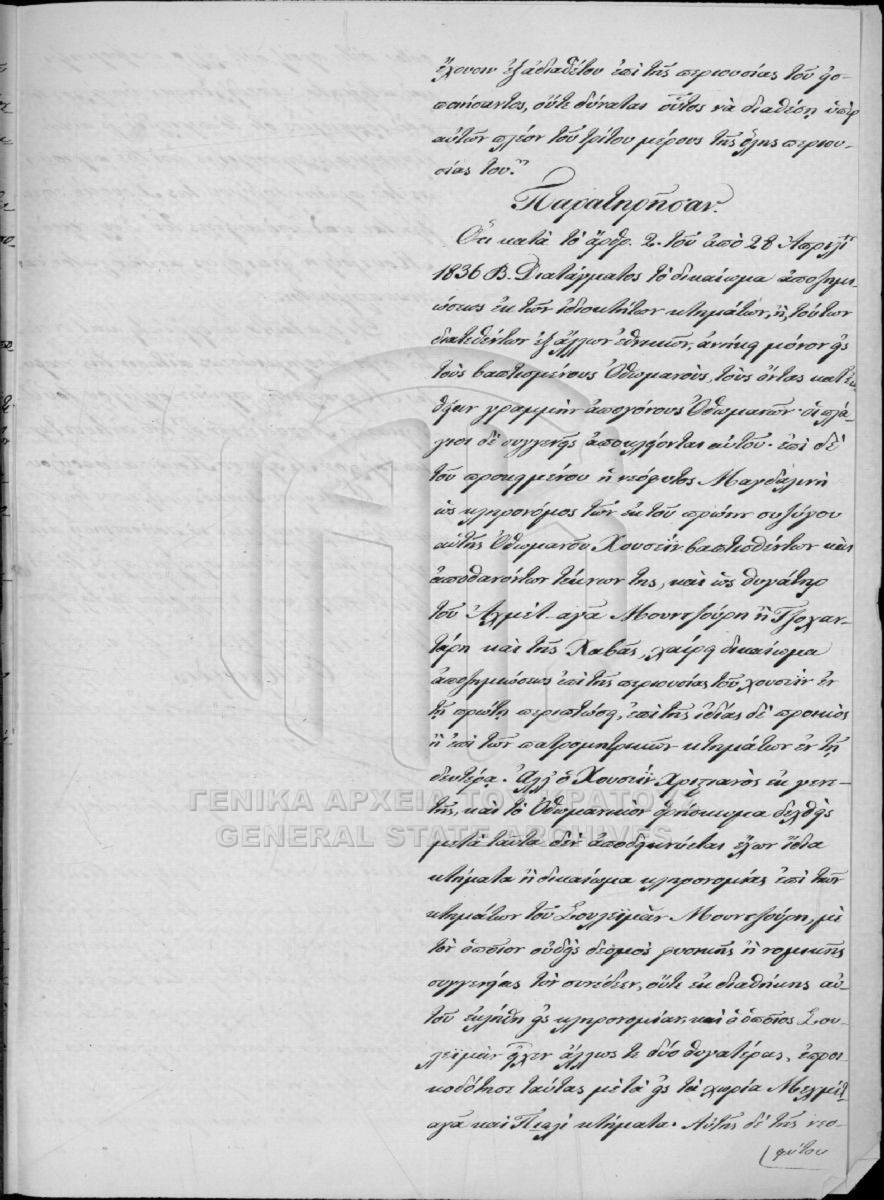 ἔχουσιν ἐξ ἀδιαθέτου ἐπὶ τῆς περιουσίας τοῦ
ποιήσαντος, οὔτε δύναται οὗτος νὰ διαθέσῃ ὑπὲρ
αὐτῶν πλέον τοῦ τρίτου μέρους τῆς ὅλης περιου-
σίας του."
Παρατηρήσαν.
Ὅτι κατὰ τὸ ἄρθρ. 2. τοῦ ἀπὸ 28 Ἀπριλί
1836 Β. Διατάγματος τὸ δικαίωμα ἀποζημι-
ώσεως ἐκ τῶν ἰδιοκτήτων κτημάτων, ἢ τούτων
διατεθέντων ἐξ ἄλλων ἐθνικῶν, ἀνήκει μόνον εἰς
τοὺς βαπτισμένους Ὀθωμανοὺς, τοὺς ὄντας κατ'
γραμμὴν ἀπογόνους Ὀθωμανῶν· οἱ πλά-
γιοι δὲ συγγενεῖς ἀποκλείονται αὐτοῦ· ἐπὶ δὲ
τοῦ προκειμένου ἡ νεόφυτος Μαγδαληνὴ
ὡς κληρονόμος τῶν ἐκ τοῦ πρώην συζύγου
αὐτῆς Ὀθωμανοῦ Χουσεῒν βαπτισθέντων καὶ
ἀποθανόντων τέκνων της, καὶ ὡς θυγάτηρ
τοῦ Ἀχμέτ-ἀγᾶ Μουντζούρη ἢ Τζοχαν-
τάρη καὶ τῆς Χαβᾶς, χαίρει δικαίωμα
ἀποζημιώσεως ἐπὶ τῆς περιουσίας τοῦ Χουσεῒν ἐν
τῇ πρώτῃ περιπτώσει, ἐπὶ τῆς ἰδίας δὲ προικὸς
ἢ ἐπὶ τῶν πατρομητρικῶν κτημάτων ἐν τῇ
δευτέρᾳ. Ἀλλ' ὁ Χουσεῒν Χριστιανὸς ἐκ γενε-
τῆς, καὶ τὸ Ὀθωμανικὸν θρήσκευμα δεχθεὶς
μετὰ ταῦτα δὲν ἀποδεικνύεται ἔχων ἴδια
κτήματα ἢ δικαίωμα κληρονομίας ἐπὶ τῶν
κτημάτων τοῦ Σουλεϊμὰν Μουντζούρη, μὲ
τὸν ὁποῖον οὐδεὶς δεσμὸς φυσικῆς ἢ νομικῆς
συγγενείας τὸν συνέδεεν, οὔτε ἐκ διαθήκης αὐ-
τοῦ ἐκλήθη εἰς κληρονομίαν, καὶ ὁ ὁποῖος Σου-
λεϊμὰν εἶχεν ἄλλως τε δύο θυγατέρας, ἐπροι-
κοδότησε ταύτας μὲ τὰ εἰς τὰ χωρία Μεχμέτ
ἀγᾶ καὶ Πιαλὶ κτήματα. Αὐτῆς δὲ τῆς νεο-
φύτου
ΓΕΝΙΚΑ ΑΡΧΕΙΑ ΤΟΥ ΚΡΑΤΟΥΣ
GENERAL STATE ARCHIVES